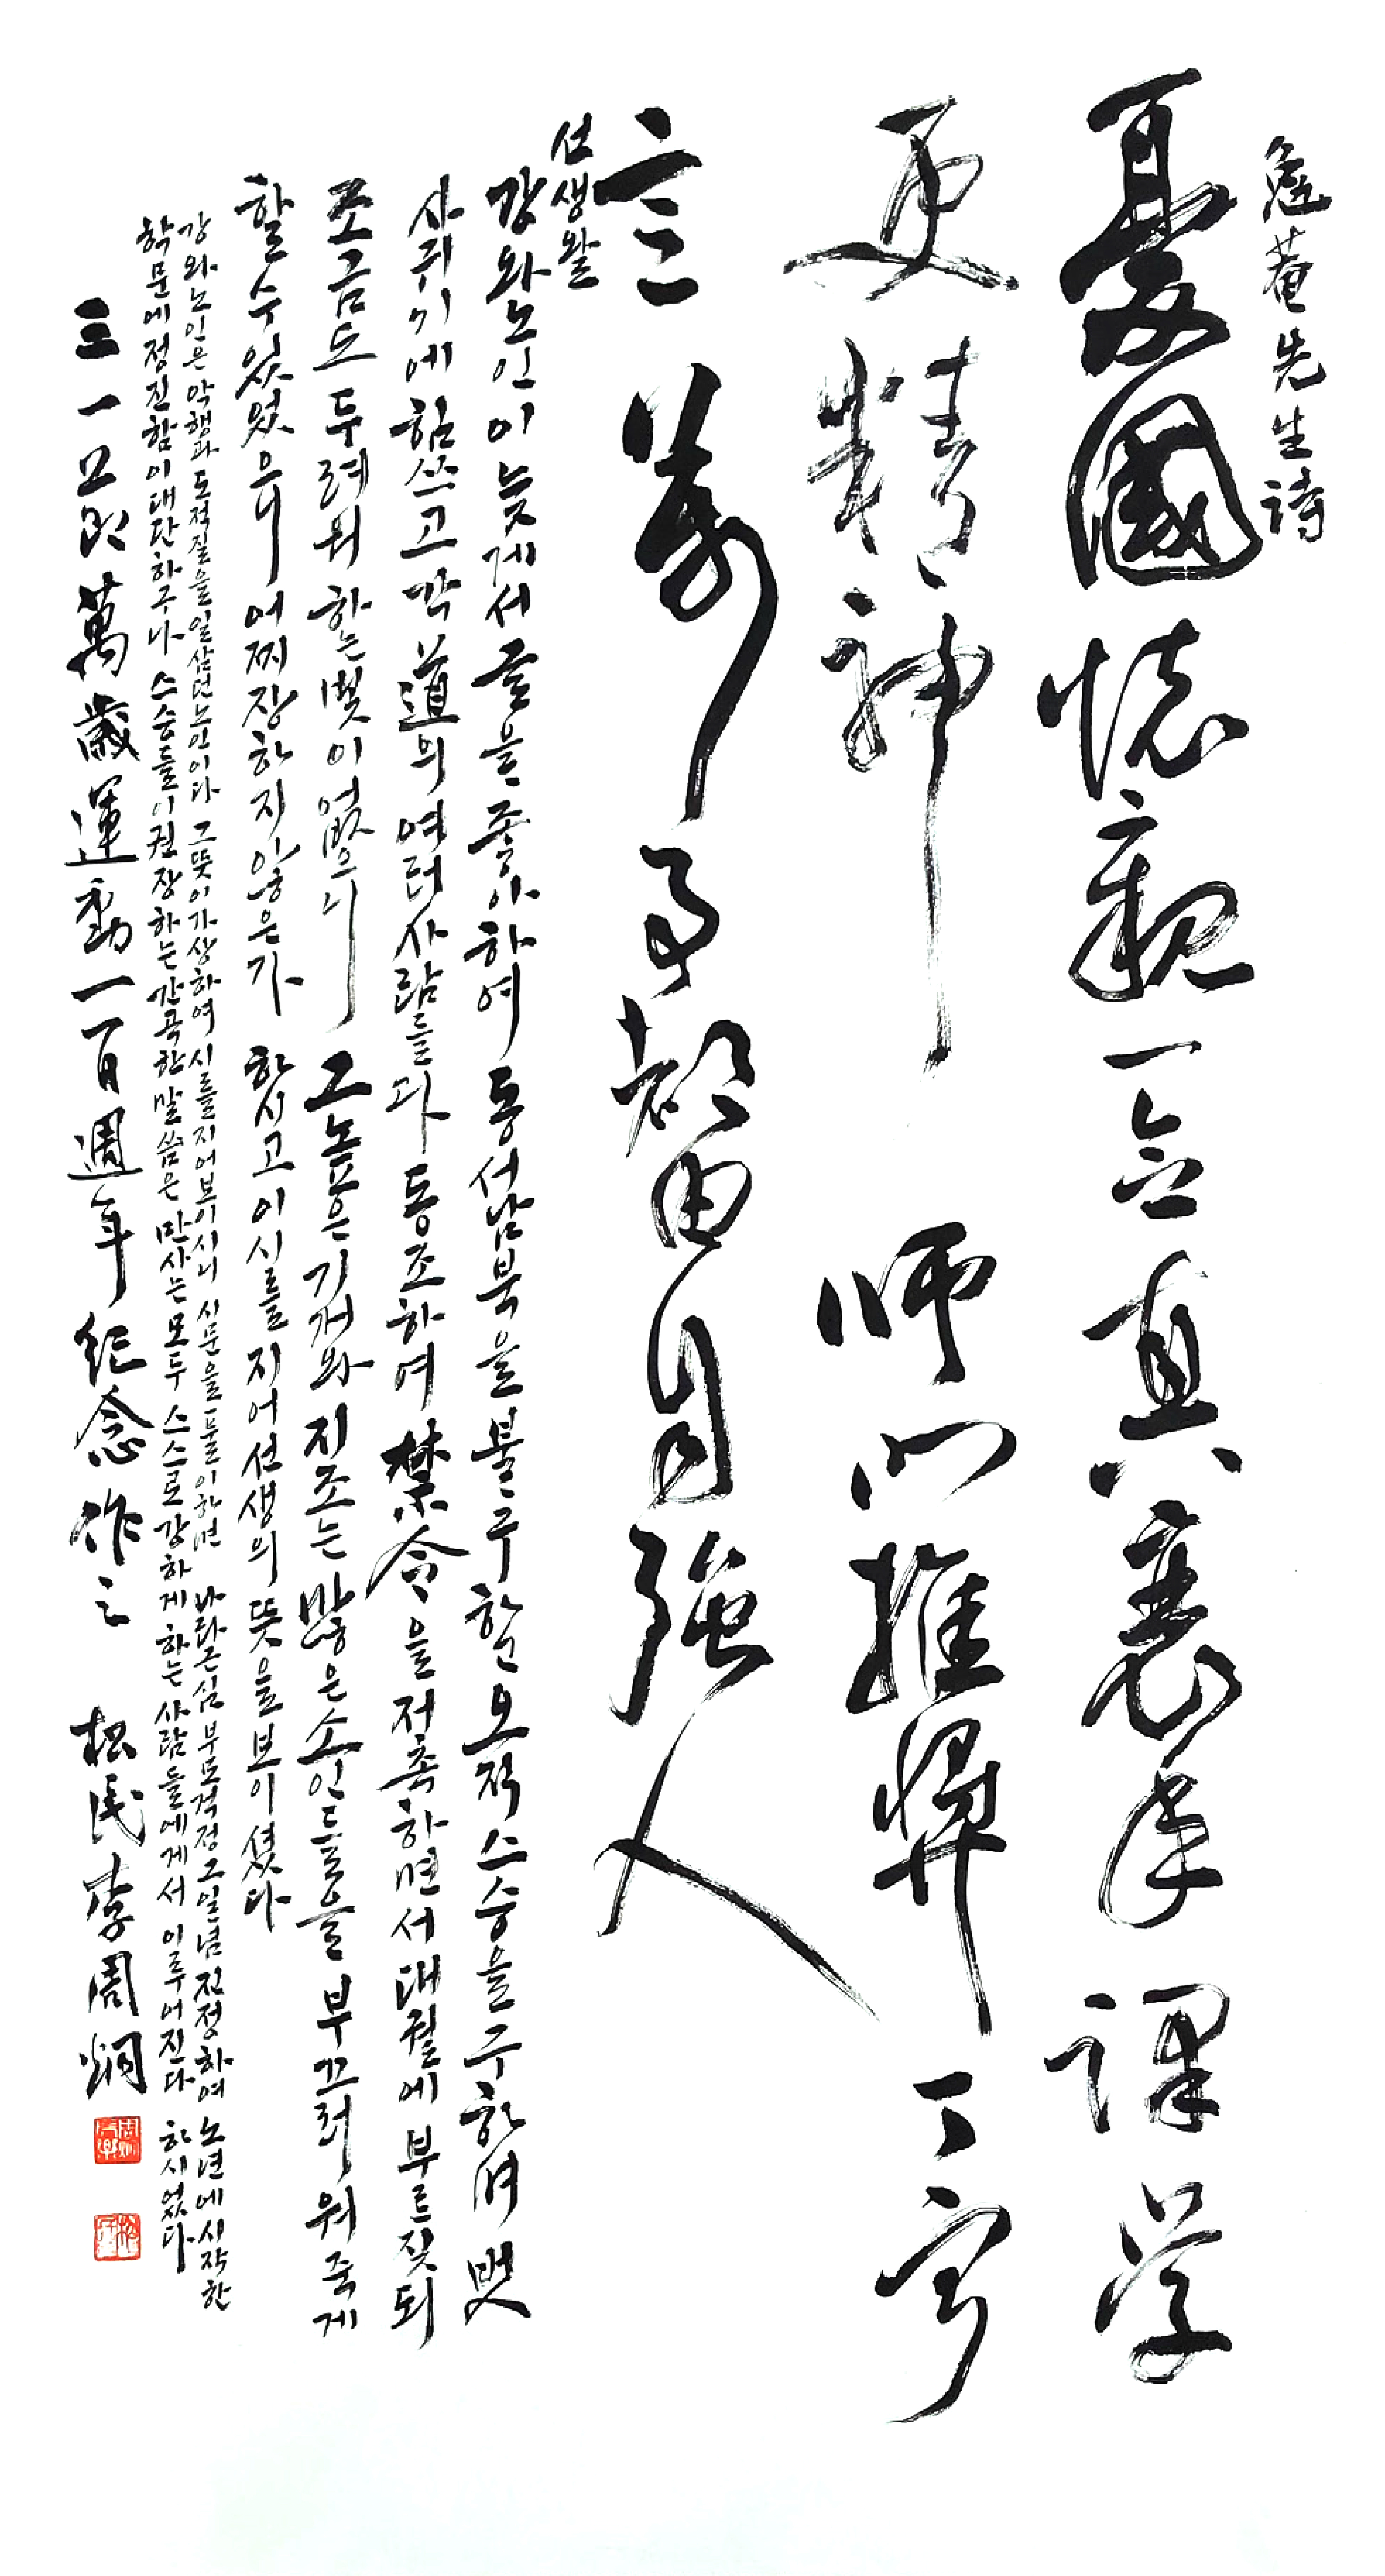 菴先生詩
憂國懷親一念真衰年課學
更精神 師門推獎丁寧
意萬事都由自強人
선생왈
강와노인이 늦게서 글을 좋아하여 동서남북을 불구한 오직 스승을 구하며 벗
사귀기에 힘쓰고 각 道의 여러 사람들과 동조하여 禁令을 저촉하면서 대궐에 부르짖되
조금도 두려워하는 빛이 없으니 그 높은 기개와 지조는 많은 소인들을 부끄러워 죽게
할 수 있었으니 어찌 장하지 않은가 하시고 이 시를 지어 선생의 뜻을 보이셨다
강와노인은 악행과 도적질을 일삼던 노인이다 그 뜻이 가상하여 시를 지어 보이시니 시문을 풀이하면 나라근심 부모걱정 그 일념 진정하여 노년에 시작한
학문에 정진함이 대단하구나 스승들이 권장하는 간곡한 말씀은 만사는 모두 스스로 강하게 하는 사람들에게서 이루어진다 하시었다
三一 萬歲運動一百週年 紀念作之 松民 李周炯